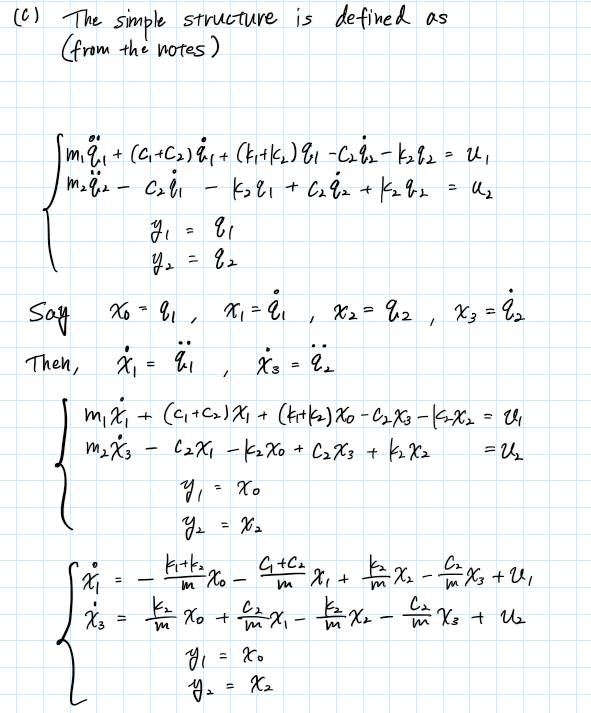 (c) The simple structure is defined as
(from the notes)
m₁q̈₁ + (c₁+c₂)q̇₁ + (k₁+k₂)q₁ - c₂q̇₂ - k₂q₂ = u₁
m₂q̈₂ - c₂q̇₁ - k₂q₁ + c₂q̇₂ + k₂q₂ = u₂
y₁ = q₁
y₂ = q₂
Say x₀ = q₁ , x₁ = q̇₁ , x₂ = q₂ , x₃ = q̇₂
Then, ẋ₁ = q̈₁ , ẋ₃ = q̈₂
m₁ẋ₁ + (c₁+c₂)x₁ + (k₁+k₂)x₀ - c₂x₃ - k₂x₂ = u₁
m₂ẋ₃ - c₂x₁ - k₂x₀ + c₂x₃ + k₂x₂ = u₂
y₁ = x₀
y₂ = x₂
ẋ₁ = - (k₁+k₂)/m x₀ - (c₁+c₂)/m x₁ + k₂/m x₂ - c₂/m x₃ + u₁
ẋ₃ = k₂/m x₀ + c₂/m x₁ - k₂/m x₂ - c₂/m x₃ + u₂
y₁ = x₀
y₂ = x₂